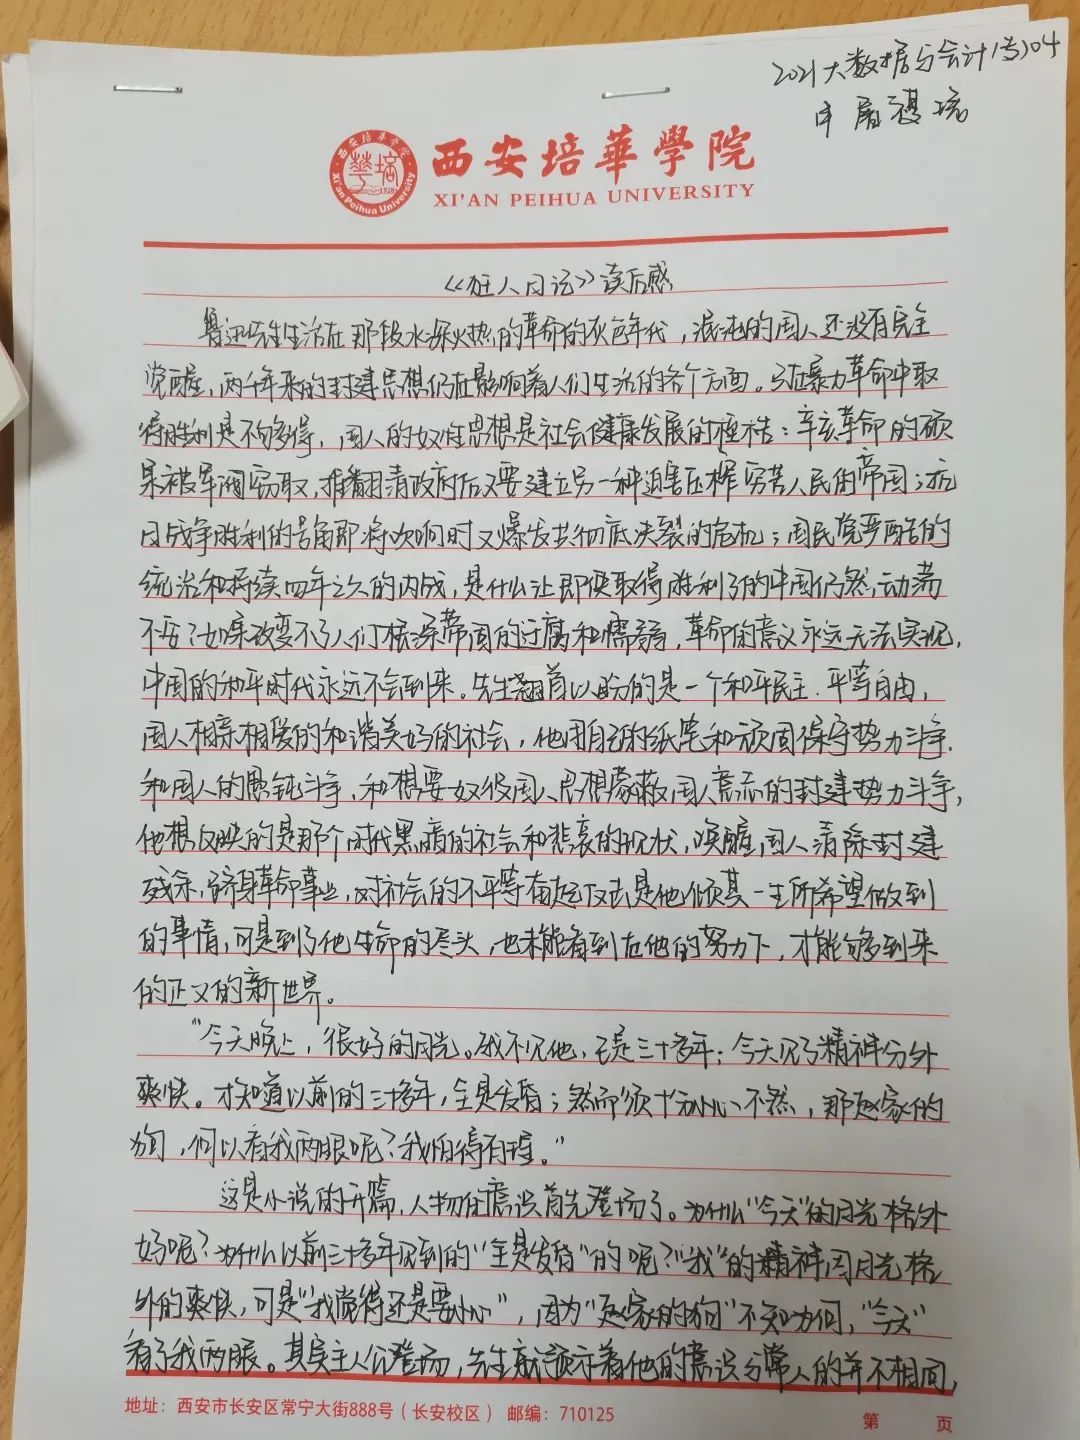 2021大数据与会计(专)04
申屠禊瑶
西安培華學院
XI'AN PEIHUA UNIVERSITY
西安培华学院
Xi'an Peihua University
1928
《狂人日记》读后感
鲁迅先生生活在那段水深火热的革命的灰色年代，混沌的国人还没有完全
觉醒，两千年来的封建思想仍在影响着人们生活的各个方面。与在暴力革命中取
得胜利是不够得，国人的奴性思想是社会健康发展的桎梏：辛亥革命的硕
果被军阀窃取，推翻清政府后又要建立另一种迫害压榨穷苦人民的帝国；抗
日战争胜利的号角即将吹响时又爆发共彻底决裂的危机；国民党严酷的
统治和持续四年之久的内战，是什么让即便取得胜利了的中国仍然动荡
不安？如果改变不了人们根深蒂固的迂腐和懦弱，革命的意义永远无法实现，
中国的和平时代永远不会到来。先生翘首以盼的是一个和平民主、平等自由，
国人相亲相爱的和谐美好的社会，他用自己的纸笔和顽固保守势力斗争，
和国人的愚钝斗争，和想要奴役国人思想蒙蔽国人意志的封建势力斗争，
他想反映的是那个时代黑暗的社会和悲哀的现状，唤醒国人清除封建
残余，跻身革命事业，对社会的不平等奋起反击是他倾其一生所希望做到
的事情，可是到了他生命的尽头，也未能看到在他的努力下，才能够到来
的正义的新世界。
“今天晚上，很好的月光。我不见他，已是三十多年；今天见了精神分外
爽快。才知道以前的三十多年，全是发昏；然而须十分小心。不然，那赵家的
狗，何以看我两眼呢？我怕得有理。”
这是小说的开篇，人物的意识首先登场了。为什么“今天”的月光格外
好呢？为什么以前三十多年见到的“全是发昏”的呢？“我”的精神因月光格
外的爽快，可是“我觉得还是要小心”，因为“赵家的狗”不知为何，“今天”
看了我两眼。其实主人公登场，先生就预示着他的意识与常人的并不相同，
地址：西安市长安区常宁大街888号（长安校区） 邮编：710125
第 页